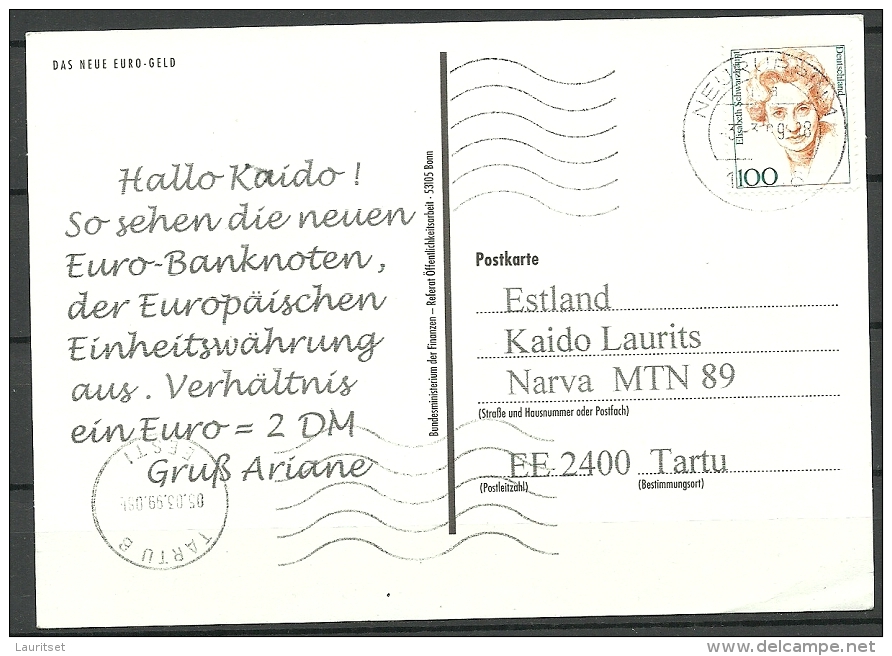 DAS NEUE EURO-GELD
Hallo Kaido !
So sehen die neuen
Euro-Banknoten,
der Europäischen
Einheitswährung
aus. Verhältnis
ein Euro = 2 DM
Gruß Ariane
EESTI
05.03.99
TARTU
Bundesministerium der Finanzen – Referat Öffentlichkeitsarbeit · 53105 Bonn
Elisabeth Schwarzhaupt
Deutschland
100
Postkarte
Estland
Kaido Laurits
Narva MTN 89
(Straße und Hausnummer oder Postfach)
EE 2400 Tartu
(Postleitzahl) (Bestimmungsort)
Lauritset
delcampe.net